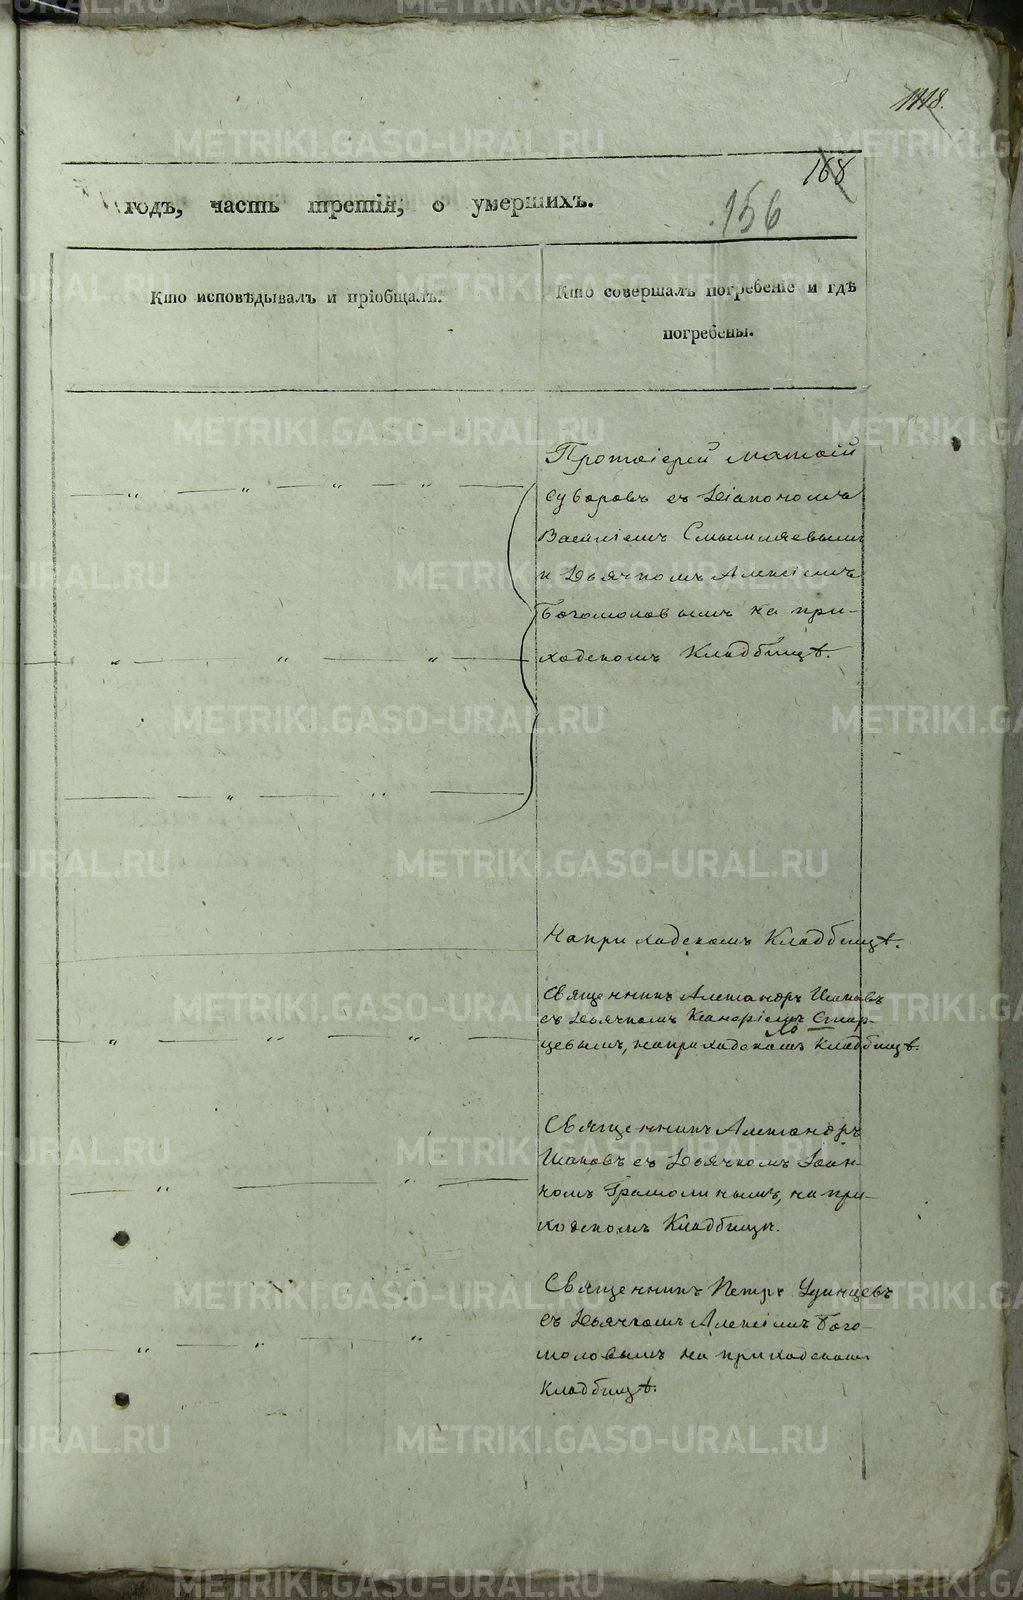 1118.
168
156
годъ, часть третія, о умершихъ.
Кто исповѣдывалъ и пріобщалъ.
Кто совершалъ погребеніе и гдѣ
погребены.
Протоіерей Матѳій
Суворовъ съ Діакономъ
Василіемъ
и Дьячкомъ Алексіемъ
Богомоловымъ на при-
ходскомъ Кладбищѣ.
На приходскомъ Кладбищѣ.
Священникъ Александръ
съ Дьячкомъ Стар-
цевымъ, на приходскомъ Кладбищѣ.
Священникъ Александръ
съ Дьячкомъ Іоан-
номъ на при-
ходскомъ Кладбищѣ.
Священникъ Петръ Удинцевъ
съ Дьячкомъ Алексіемъ Бого-
моловымъ на приходскомъ
Кладбищѣ.
METRIKI.GASO-URAL.RU